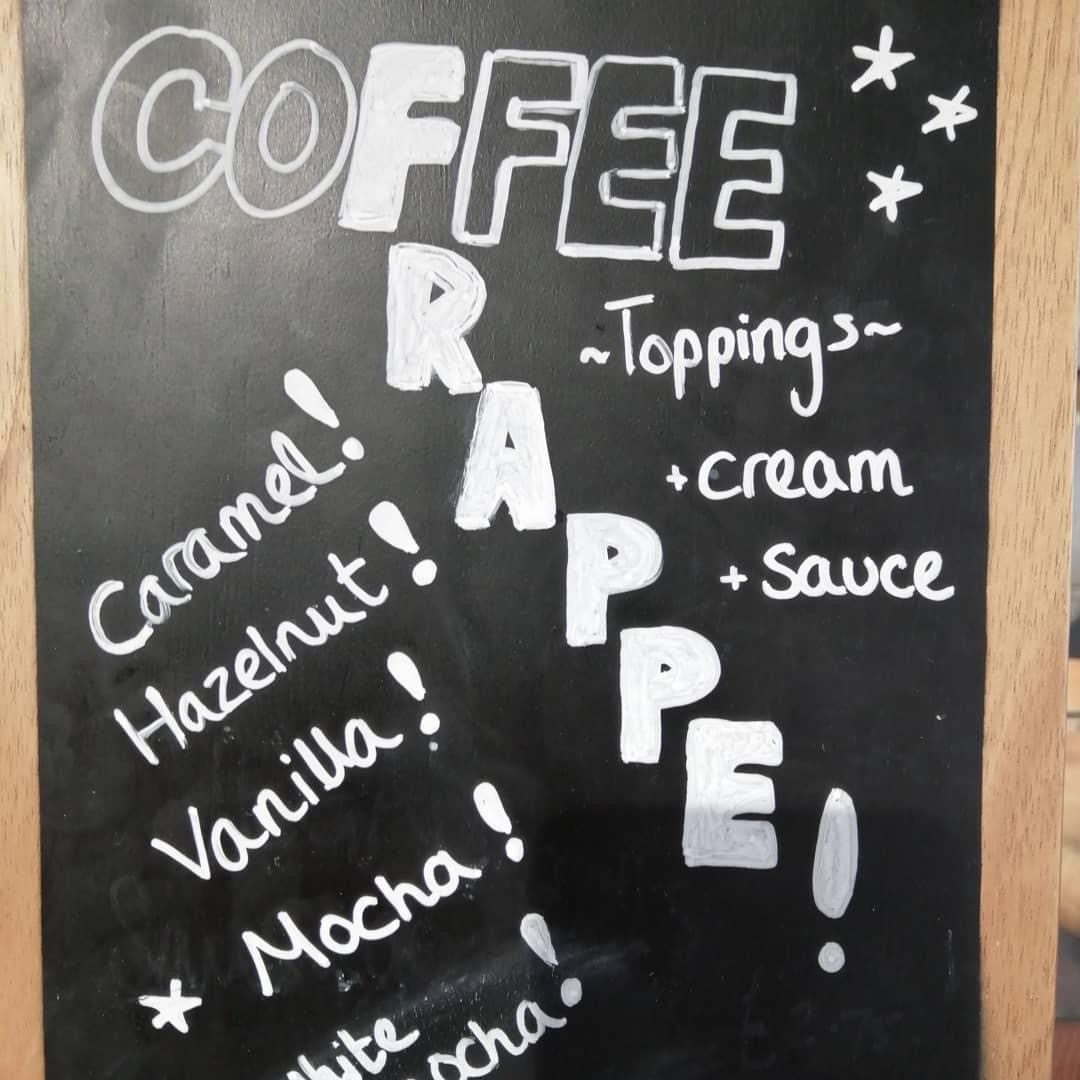 COFFEE
FRAPPE!
~Toppings~
+ cream
+ sauce
Caramel!
Hazelnut!
Vanilla!
Mocha!
White
Mocha!